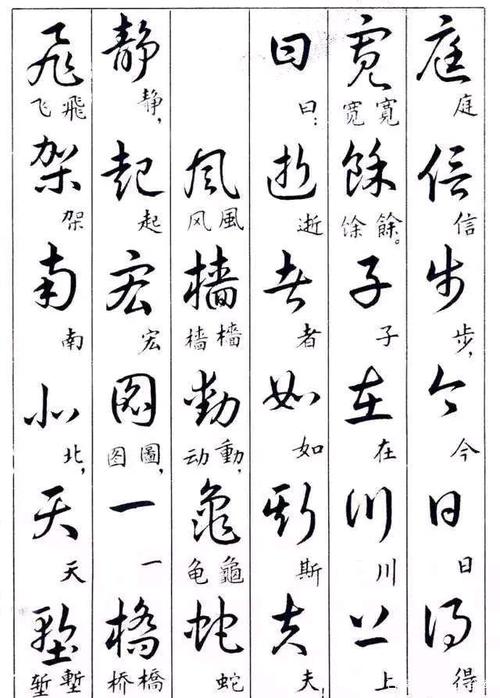 庭信步今日得
庭信步，今日得
寬餘子在川上
宽寬馀餘。子在川上
曰逝者如斯夫
曰：逝者如斯夫！
風檣動龜蛇
风風樯檣动動，龟龜蛇
静起宏圖一橋
静，起宏图圖，一桥橋
飛架南北天塹
飞飛架南北，天堑塹